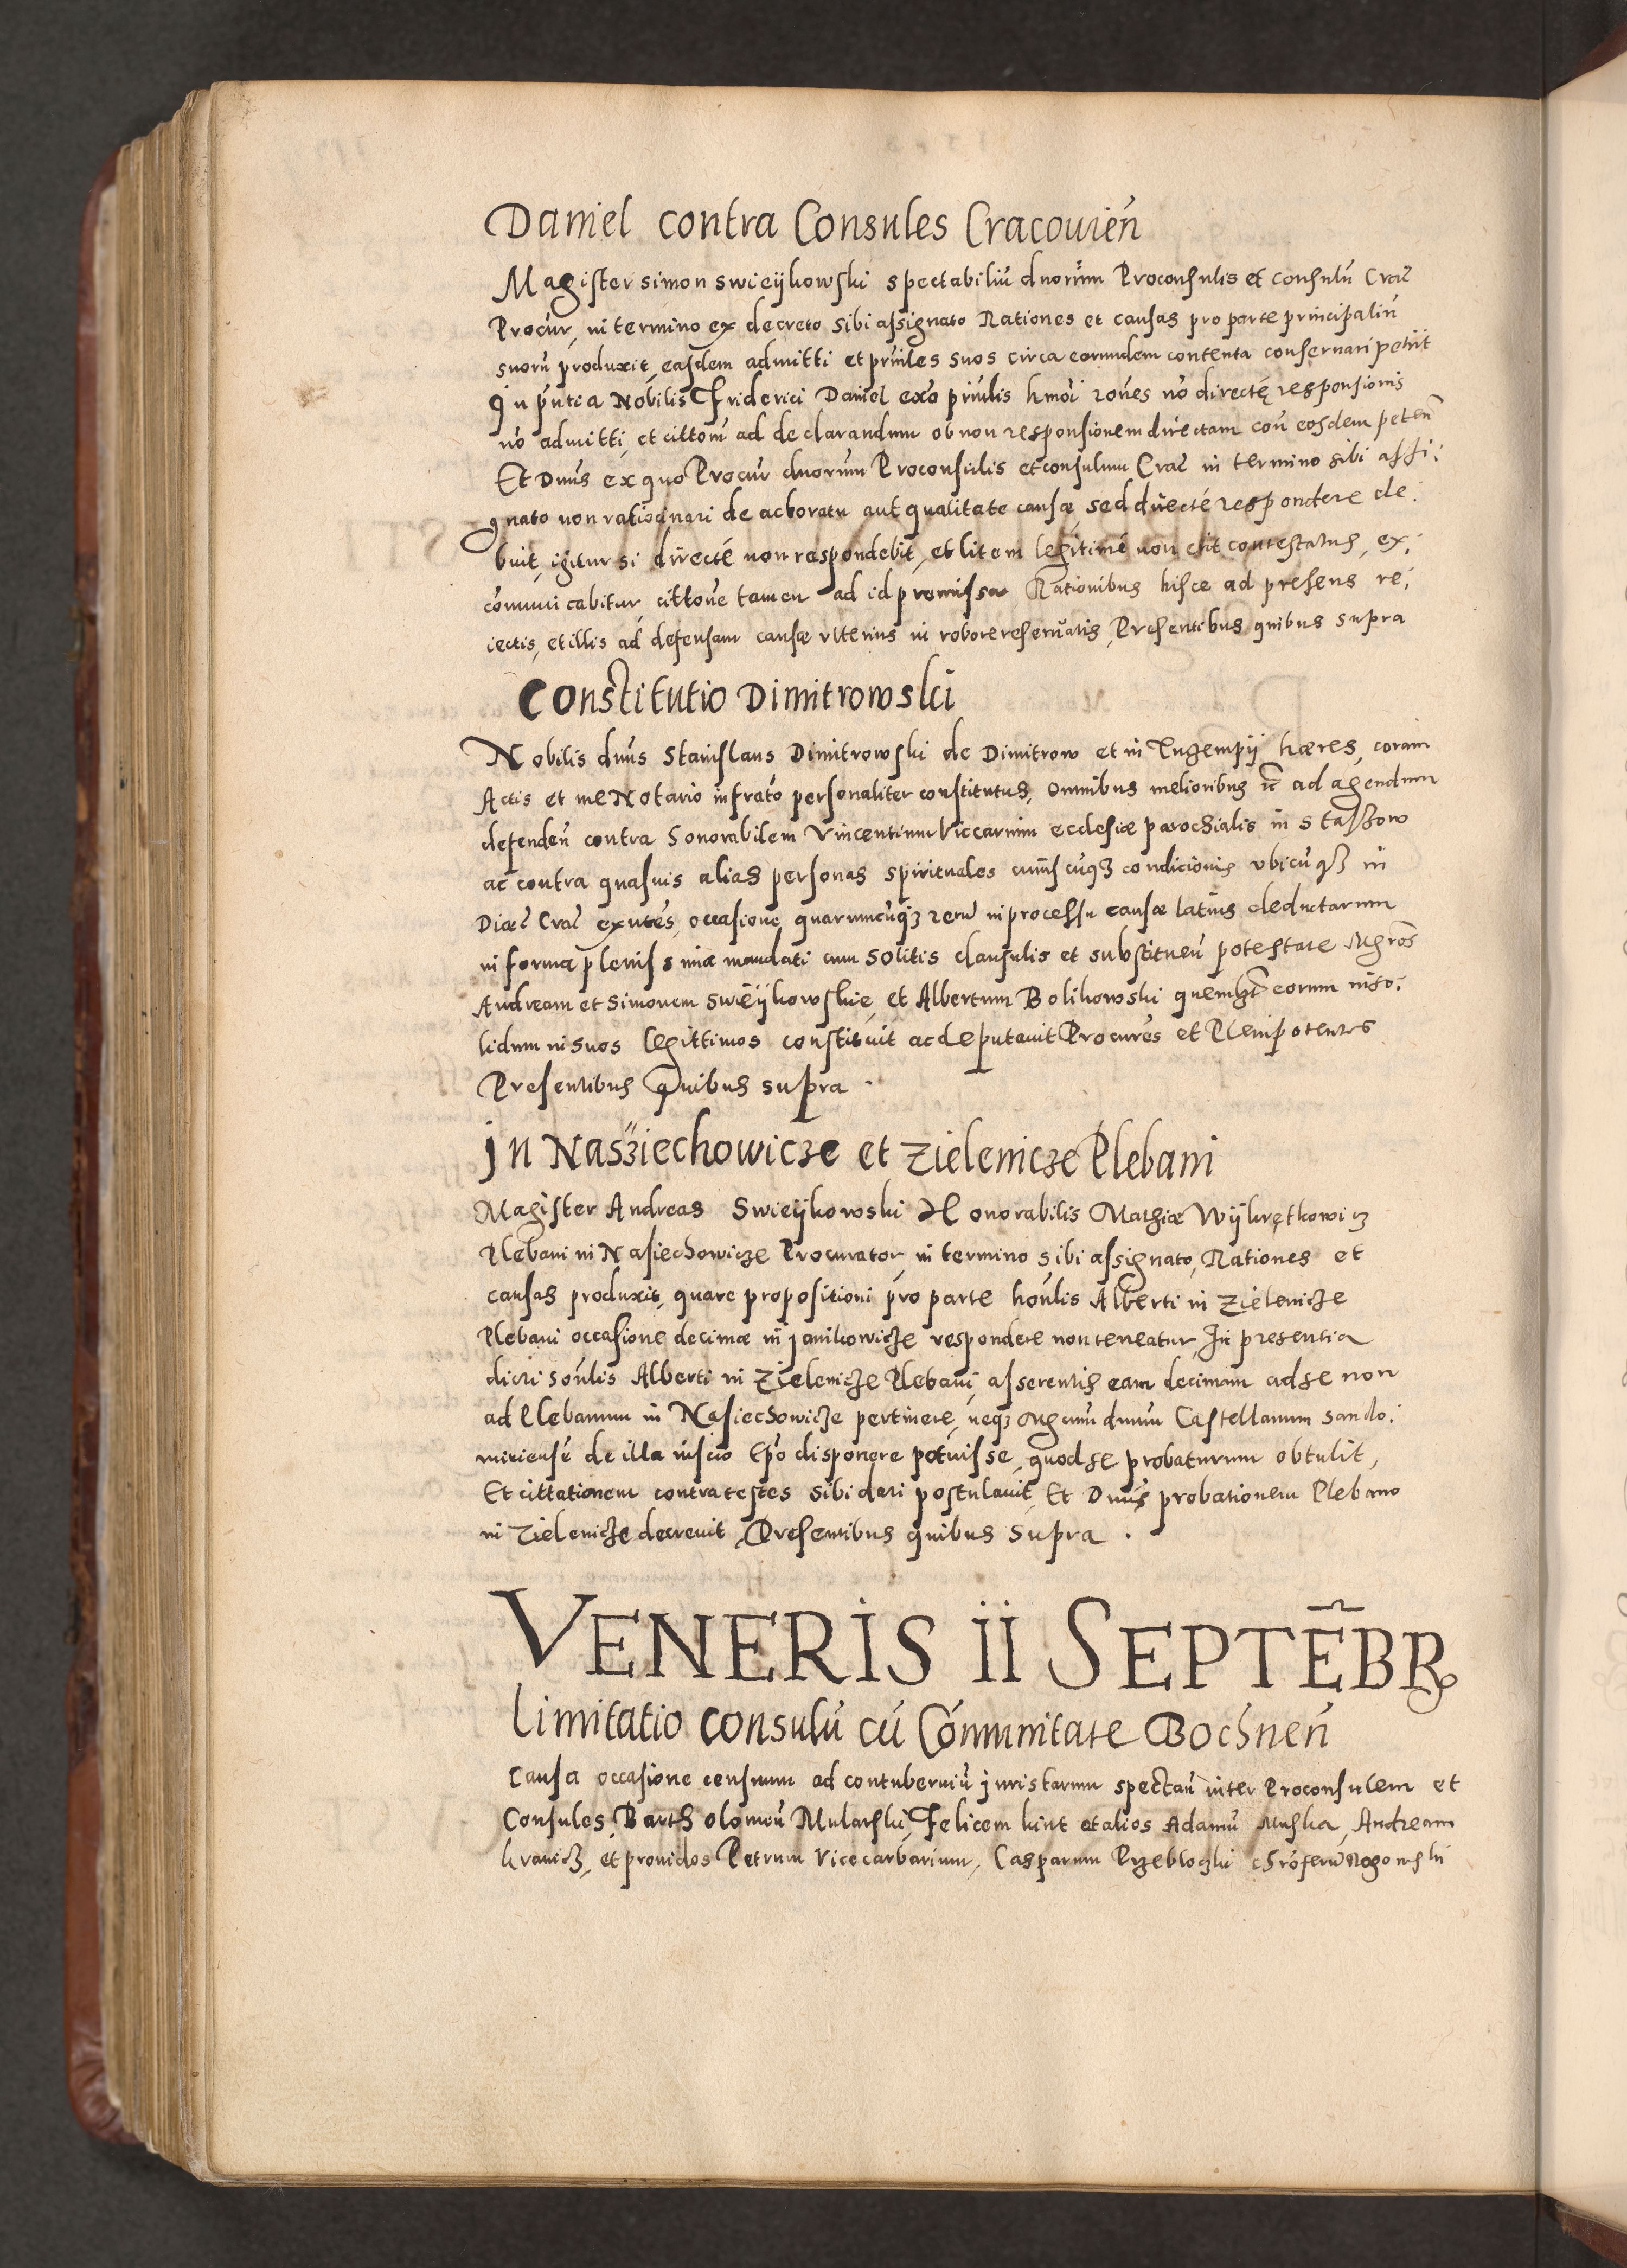 Daniel contra Consules Cracouień
Magister simon swieÿkowski spectabiliū dnorūm Proconsulis et consulū Cra͡c
Procur̄, in termino ex decreto sibi assignato Rationes et causas pro parte principaliū
suorū produxit, easdem admitti et prn̄les suos circa eorundem contenta conseruari petiit
In pn̄tia Nobilis Friderici Daniel exo principalis hmoi ro̅nes no̅ directę responsionis
no̅ admitti, et citto̅m ad declarandum ob non responsionem directam con̄ eosdem peten̄
Et Dnūs ex quo Procur̄ dnorūm Proconsulis et consulum Cra͡c in termino sibi assi:
gnato non ratiocinari de acboratu aut qualitate causæ, sed directé respondere de:
buit, igitur si directé non respondebit, et litem legitimé non erit contestatus, ex:
cōmunicabitur, citto̅ne tamen ad id premissa Rationibus hisce ad presens re:
iectis, et illis ad defensam causæ vlterius in robore reseruatis, Presentibus quibus supra
Constitutio Dimitrowski
Nobilis dnūs Stanislaus Dimitrowski de Dimitrow et in Lugempij hæres, coram
Actis et me Notario infrato̅ personaliter constitutus, Omnibus melioribus ec̄ ad agendum
defenden̄ contra honorabilem Vincentium Viccarium ecclesiæ parochialis in Staszow
ac contra quasuis alias personas spirituales cuiūscuqʒ condicionis vbicūqʒ in
Diæc̄ Cra͡c exn̄tes, occasione quarumcūqʒ rerū in processu causæ latius deductarum
in forma plenissimæ mandati cum solitis clausulis et substituen̄ potestate Mgro̅s
Andream et Simonem swieÿkowskie, et Albertum Bolikowski quemlʒt eorum inso:
lidum in suos legittimos constituit ac deputauit Procures et Plenipotentes
Presentibus Quibus supra .
In Nasʒiechowicʒe et Zielenicʒe Plebani
Magister Andreas Swieÿkowski Honorabilis Mathiæ Wÿkrętkowicʒ
Plebani in Nasiechowicʒe Procurator, in termino sibi assignato, Rationes et
causas produxit, quare propositioni pro parte hon̄lis Alberti in Zielenicʒe
Plebani occasione decimæ in Janikowicʒe respondere non teneatur, In presentia
dicti hon̄lis Alberti in Zielenicʒe Plebani, asserentis eam decimam ad se non
ad Plebanum in Nasiechowicʒe pertinere, neqʒ Mgcum̄ dnum̄ Castellanum sando:
miriensē de illa inscio Epo̅ disponere potuisse, quod se probaturum obtulit,
Et cittationem contra testes sibi dari postulauit, Et Dnūs probationem Plebano
in Zielenicʒe decreuit, Presentibus quibus supra .
VENERIS II SEPTĒBR
Limitatio Consulū cū Cōmmunitate Bochnen̄
Causa occasione censuum ad contuberniū juristarum spectan̄ inter Proconsulem et
Consules, Bartholomeū Mularski, Felicem kint et alios Adamū Muska, Andream
krauicʒ, et prouidos Petrum Vicecarbarium, Casparum Przebloczki Chrōferū Rogowski